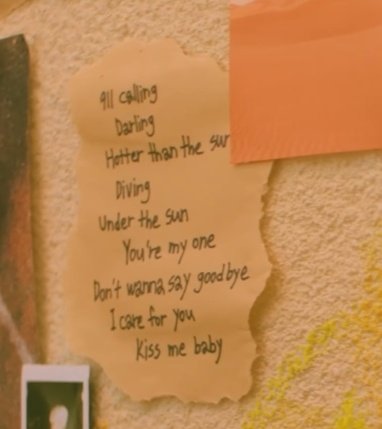 911 calling
Darling
Hotter than the sun
Diving
Under the sun
You're my one
Don't wanna say goodbye
I care for you
Kiss me baby